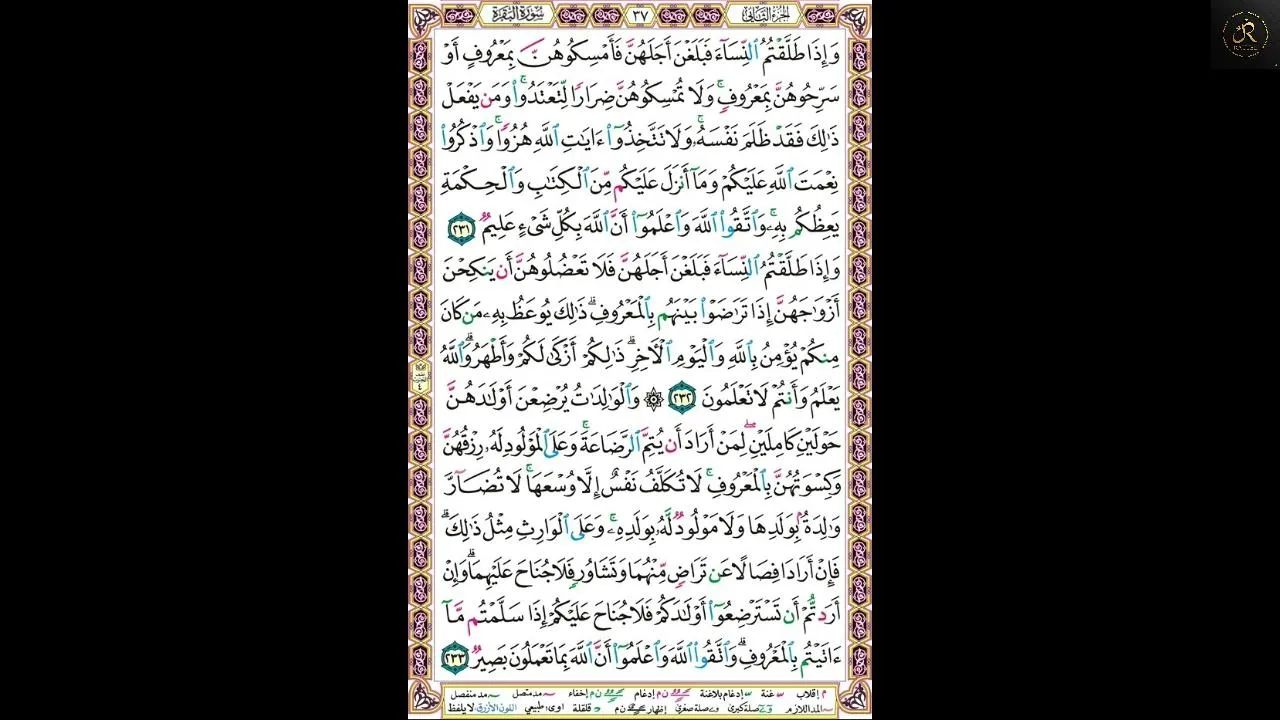 الجزء الثاني ٣٧ سورة البقرة
وَإِذَا طَلَّقْتُمُ ٱلنِّسَآءَ فَبَلَغْنَ أَجَلَهُنَّ فَأَمْسِكُوهُنَّ بِمَعْرُوفٍ أَوْ
سَرِّحُوهُنَّ بِمَعْرُوفٍۚ وَلَا تُمْسِكُوهُنَّ ضِرَارًا لِّتَعْتَدُوا۟ۚ وَمَن يَفْعَلْ
ذَٰلِكَ فَقَدْ ظَلَمَ نَفْسَهُۥۚ وَلَا تَتَّخِذُوٓا۟ ءَايَٰتِ ٱللَّهِ هُزُوًاۚ وَٱذْكُرُوا۟
نِعْمَتَ ٱللَّهِ عَلَيْكُمْ وَمَآ أَنزَلَ عَلَيْكُم مِّنَ ٱلْكِتَٰبِ وَٱلْحِكْمَةِ
يَعِظُكُم بِهِۦۚ وَٱتَّقُوا۟ ٱللَّهَ وَٱعْلَمُوٓا۟ أَنَّ ٱللَّهَ بِكُلِّ شَىْءٍ عَلِيمٌ ٢٣١
وَإِذَا طَلَّقْتُمُ ٱلنِّسَآءَ فَبَلَغْنَ أَجَلَهُنَّ فَلَا تَعْضُلُوهُنَّ أَن يَنكِحْنَ
أَزْوَٰجَهُنَّ إِذَا تَرَٰضَوْا۟ بَيْنَهُم بِٱلْمَعْرُوفِۗ ذَٰلِكَ يُوعَظُ بِهِۦ مَن كَانَ
مِنكُمْ يُؤْمِنُ بِٱللَّهِ وَٱلْيَوْمِ ٱلْءَاخِرِۗ ذَٰلِكُمْ أَزْكَىٰ لَكُمْ وَأَطْهَرُۗ وَٱللَّهُ
يَعْلَمُ وَأَنتُمْ لَا تَعْلَمُونَ ٢٣٢ ۞ وَٱلْوَٰلِدَٰتُ يُرْضِعْنَ أَوْلَٰدَهُنَّ
حَوْلَيْنِ كَامِلَيْنِۖ لِمَنْ أَرَادَ أَن يُتِمَّ ٱلرَّضَاعَةَۚ وَعَلَى ٱلْمَوْلُودِ لَهُۥ رِزْقُهُنَّ
وَكِسْوَتُهُنَّ بِٱلْمَعْرُوفِۚ لَا تُكَلَّفُ نَفْسٌ إِلَّا وُسْعَهَاۚ لَا تُضَآرَّ
وَٰلِدَةٌۢ بِوَلَدِهَا وَلَا مَوْلُودٌ لَّهُۥ بِوَلَدِهِۦۚ وَعَلَى ٱلْوَارِثِ مِثْلُ ذَٰلِكَۗ
فَإِنْ أَرَادَا فِصَالًا عَن تَرَاضٍ مِّنْهُمَا وَتَشَاوُرٍ فَلَا جُنَاحَ عَلَيْهِمَاۗ وَإِنْ
أَرَدتُّمْ أَن تَسْتَرْضِعُوٓا۟ أَوْلَٰدَكُمْ فَلَا جُنَاحَ عَلَيْكُمْ إِذَا سَلَّمْتُم مَّآ
ءَاتَيْتُم بِٱلْمَعْرُوفِۗ وَٱتَّقُوا۟ ٱللَّهَ وَٱعْلَمُوٓا۟ أَنَّ ٱللَّهَ بِمَا تَعْمَلُونَ بَصِيرٌ ٢٣٣
م إقلاب غنة إدغام بلاغنة ن م إدغام ن م إخفاء مد متصل مد منفصل
المد اللازم صلة كبرى صلة صغرى إظهار ن م قلقلة اوى طبيعي اللون الأزرق لا يلفظ